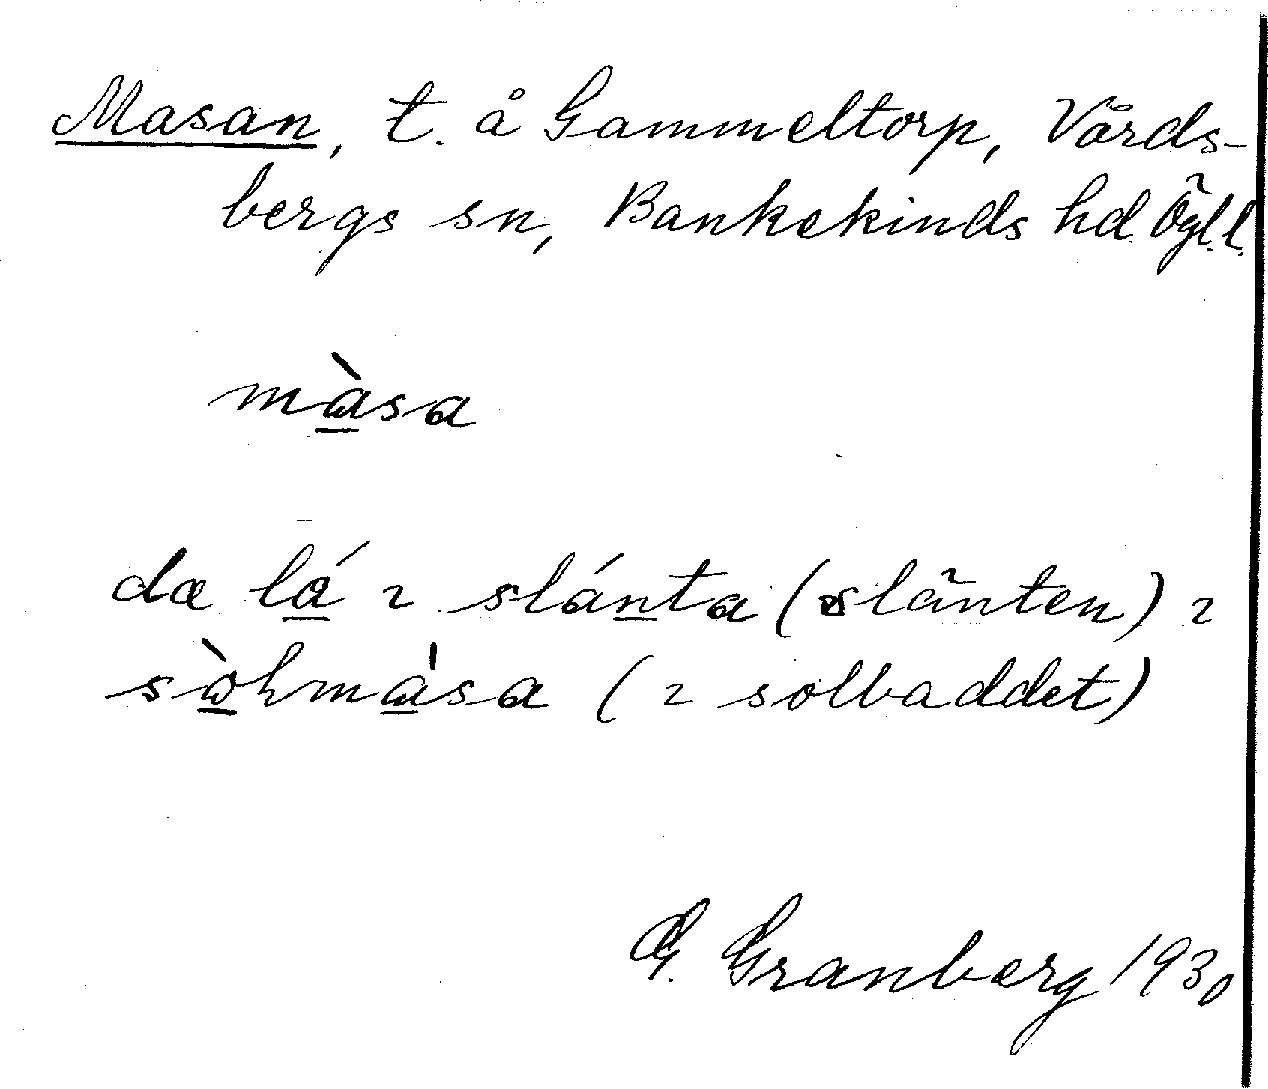 Masan, t. å Gammeltorp, Vårds-
bergs sn, Bankekinds hd Ögl.l.
màsa
dæ lá ɿ slánta (slänten) ɿ
sòhmása (ɿ solbaddet)
G. Granberg 1930